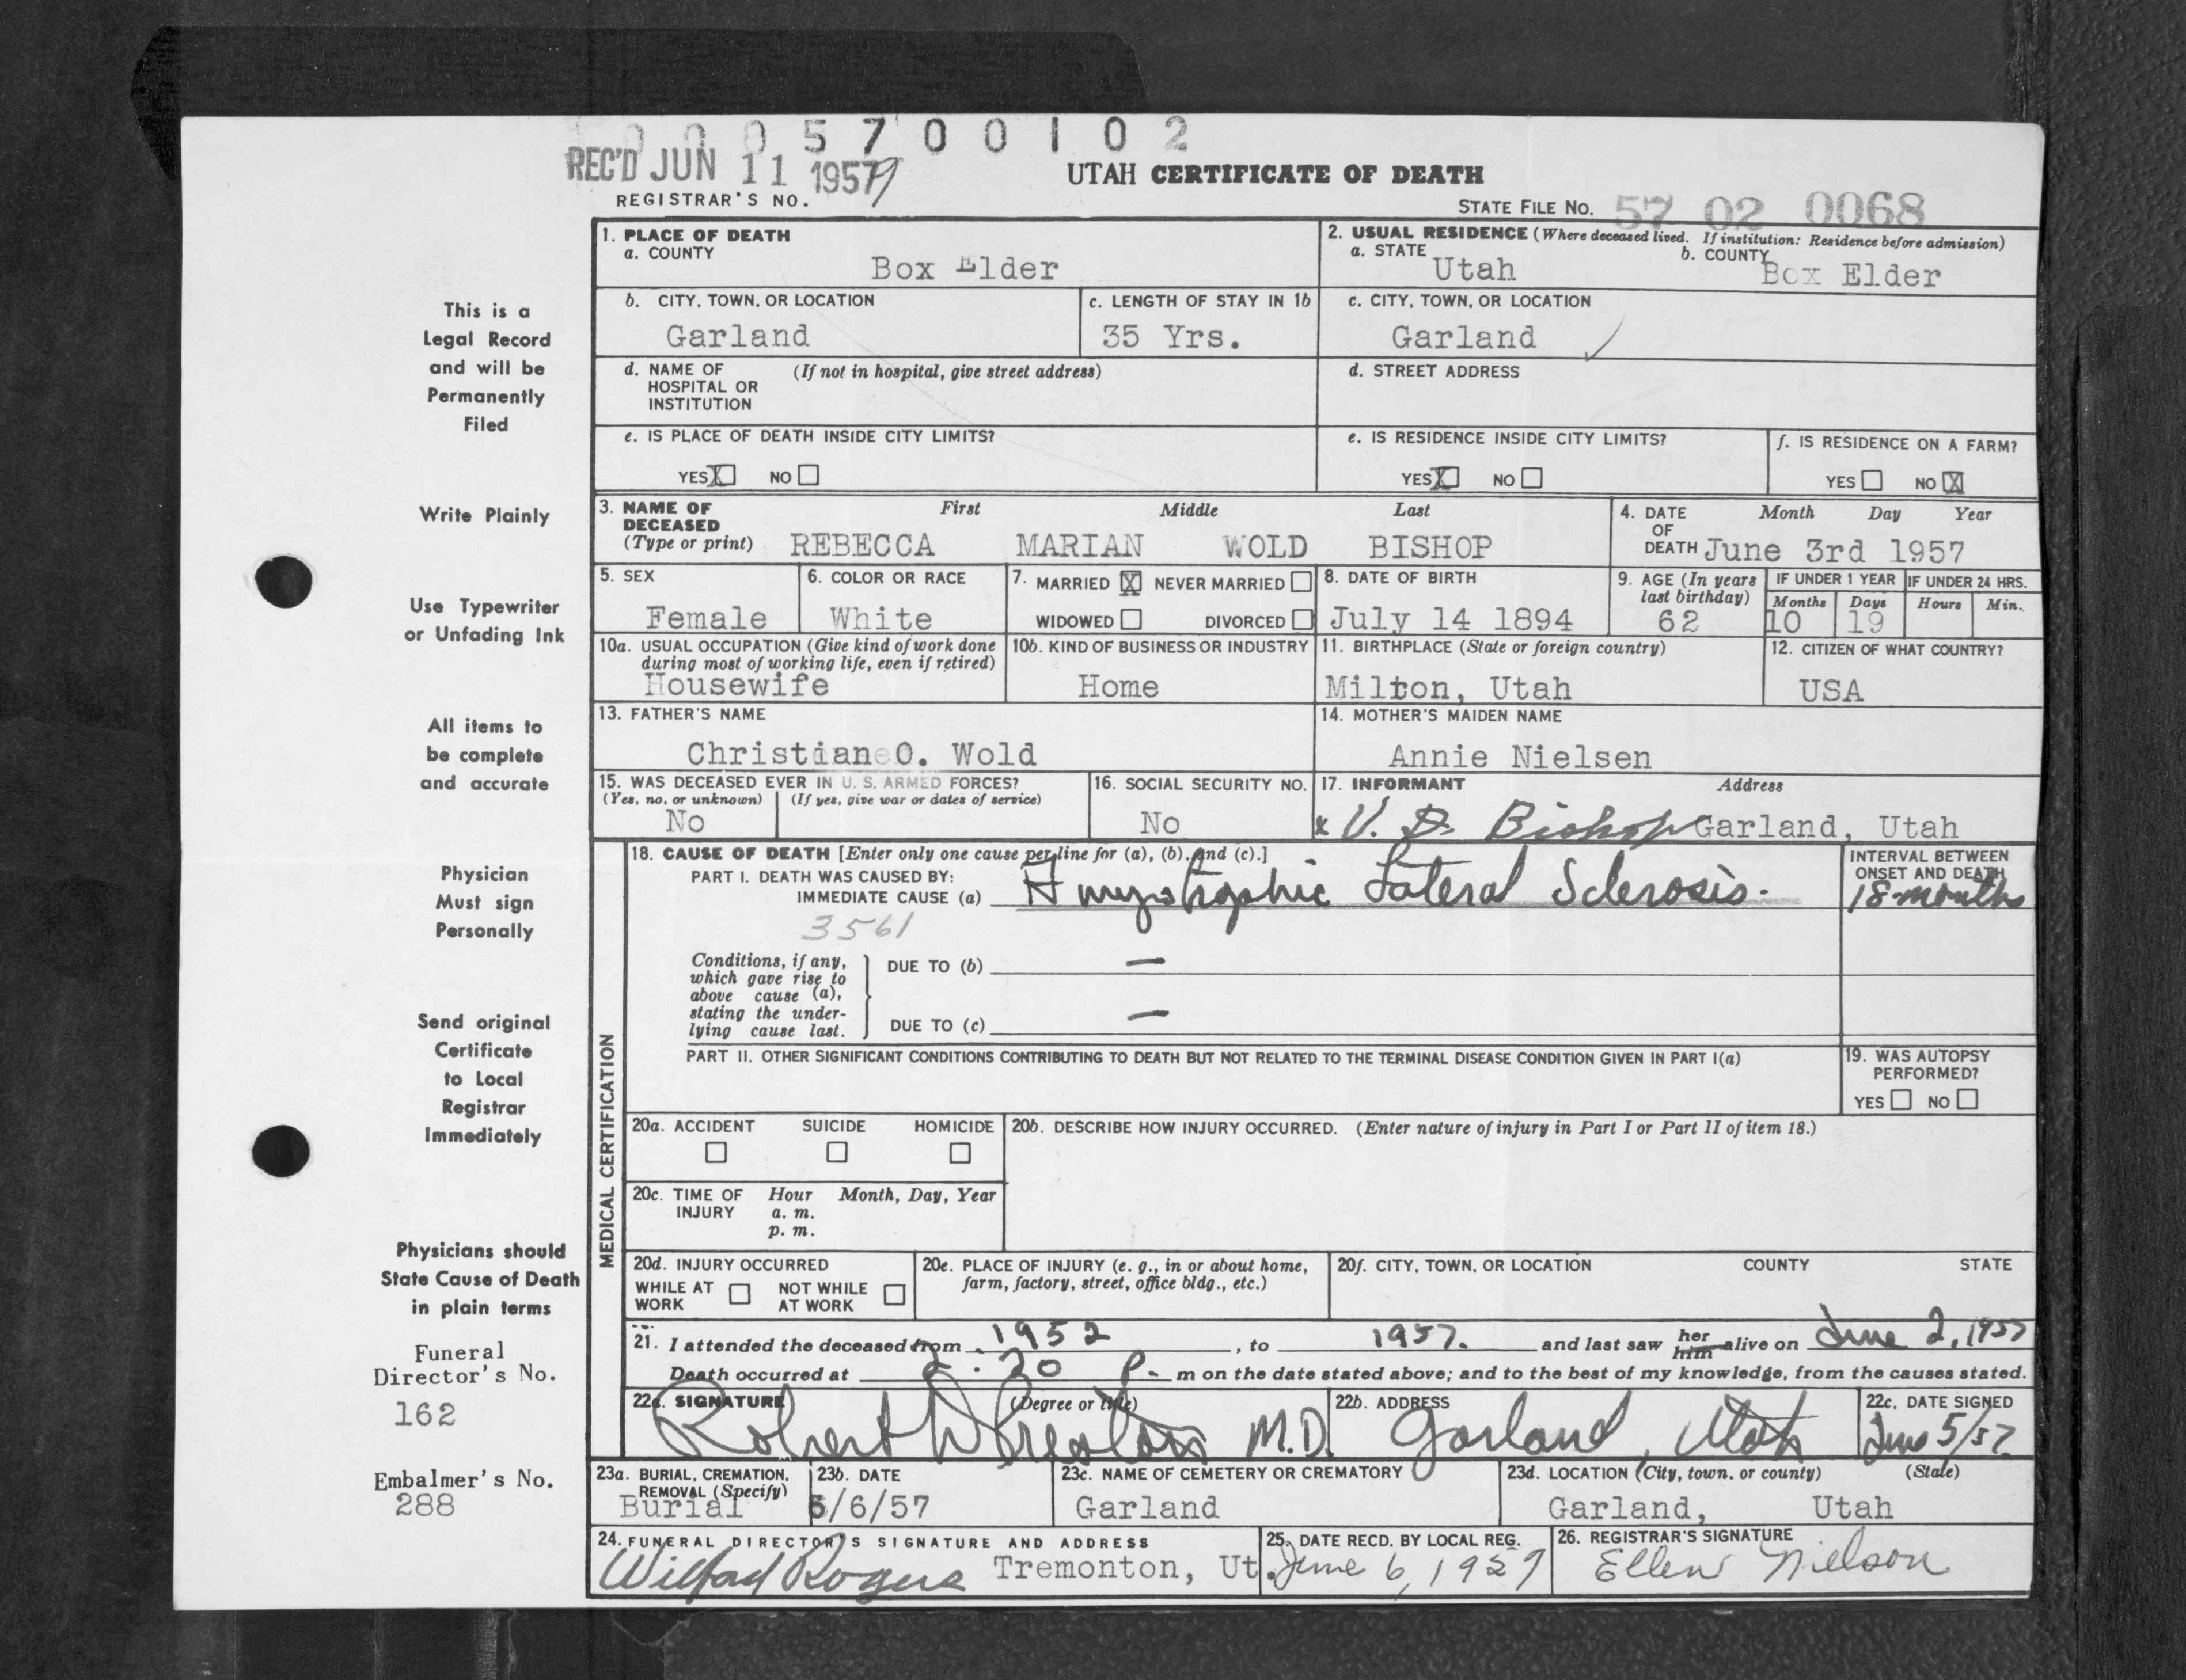 0 0 0 5 7 0 0 1 0 2
REC'D JUN 11 1957
REGISTRAR'S NO.
UTAH CERTIFICATE OF DEATH
STATE FILE NO. 57 02 0068
This is a
Legal Record
and will be
Permanently
Filed
Write Plainly
Use Typewriter
or Unfading Ink
All items to
be complete
and accurate
Physician
Must sign
Personally
Send original
Certificate
to Local
Registrar
Immediately
Physicians should
State Cause of Death
in plain terms
Funeral
Director's No.
162
Embalmer's No.
288
1. PLACE OF DEATH
a. COUNTY
Box Elder
2. USUAL RESIDENCE (Where deceased lived. If institution: Residence before admission)
a. STATE Utah
b. COUNTY Box Elder
b. CITY, TOWN, OR LOCATION
Garland
c. LENGTH OF STAY IN 1b
35 Yrs.
c. CITY, TOWN, OR LOCATION
Garland
d. NAME OF (If not in hospital, give street address)
HOSPITAL OR
INSTITUTION
d. STREET ADDRESS
e. IS PLACE OF DEATH INSIDE CITY LIMITS?
YES X NO
e. IS RESIDENCE INSIDE CITY LIMITS?
YES X NO
f. IS RESIDENCE ON A FARM?
YES NO X
3. NAME OF First Middle Last
DECEASED
(Type or print) REBECCA MARIAN WOLD BISHOP
4. DATE Month Day Year
OF
DEATH June 3rd 1957
5. SEX
Female
6. COLOR OR RACE
White
7. MARRIED X NEVER MARRIED
WIDOWED DIVORCED
8. DATE OF BIRTH
July 14 1894
9. AGE (In years
last birthday)
62
IF UNDER 1 YEAR IF UNDER 24 HRS.
Months Days Hours Min.
10 19
10a. USUAL OCCUPATION (Give kind of work done
during most of working life, even if retired)
Housewife
10b. KIND OF BUSINESS OR INDUSTRY
Home
11. BIRTHPLACE (State or foreign country)
Milton, Utah
12. CITIZEN OF WHAT COUNTRY?
USA
13. FATHER'S NAME
Christian O. Wold
14. MOTHER'S MAIDEN NAME
Annie Nielsen
15. WAS DECEASED EVER IN U. S. ARMED FORCES?
(Yes, no, or unknown) (If yes, give war or dates of service)
No
16. SOCIAL SECURITY NO.
No
17. INFORMANT Address
x V. D. Bishop Garland, Utah
MEDICAL CERTIFICATION
18. CAUSE OF DEATH [Enter only one cause per line for (a), (b), and (c).]
PART I. DEATH WAS CAUSED BY:
IMMEDIATE CAUSE (a) Amyotrophic Lateral Sclerosis.
3561
INTERVAL BETWEEN
ONSET AND DEATH
18 months
Conditions, if any,
which gave rise to
above cause (a),
stating the under-
lying cause last.
DUE TO (b) —
DUE TO (c) —
PART II. OTHER SIGNIFICANT CONDITIONS CONTRIBUTING TO DEATH BUT NOT RELATED TO THE TERMINAL DISEASE CONDITION GIVEN IN PART I(a)
19. WAS AUTOPSY
PERFORMED?
YES NO
20a. ACCIDENT SUICIDE HOMICIDE
20b. DESCRIBE HOW INJURY OCCURRED. (Enter nature of injury in Part I or Part II of item 18.)
20c. TIME OF Hour Month, Day, Year
INJURY a. m.
p. m.
20d. INJURY OCCURRED
WHILE AT NOT WHILE
WORK AT WORK
20e. PLACE OF INJURY (e. g., in or about home,
farm, factory, street, office bldg., etc.)
20f. CITY, TOWN, OR LOCATION COUNTY STATE
21. I attended the deceased from 1952, to 1957. and last saw her him alive on June 2, 1957
Death occurred at 2:20 P. m on the date stated above; and to the best of my knowledge, from the causes stated.
22a. SIGNATURE (Degree or title)
Robert W Preston M.D.
22b. ADDRESS
Garland, Utah
22c. DATE SIGNED
June 5/57
23a. BURIAL, CREMATION,
REMOVAL (Specify)
Burial
23b. DATE
6/6/57
23c. NAME OF CEMETERY OR CREMATORY
Garland
23d. LOCATION (City, town, or county) (State)
Garland, Utah
24. FUNERAL DIRECTOR'S SIGNATURE AND ADDRESS
Wilford Rogers Tremonton, Ut.
25. DATE RECD. BY LOCAL REG.
June 6, 1957
26. REGISTRAR'S SIGNATURE
Ellen Nielson